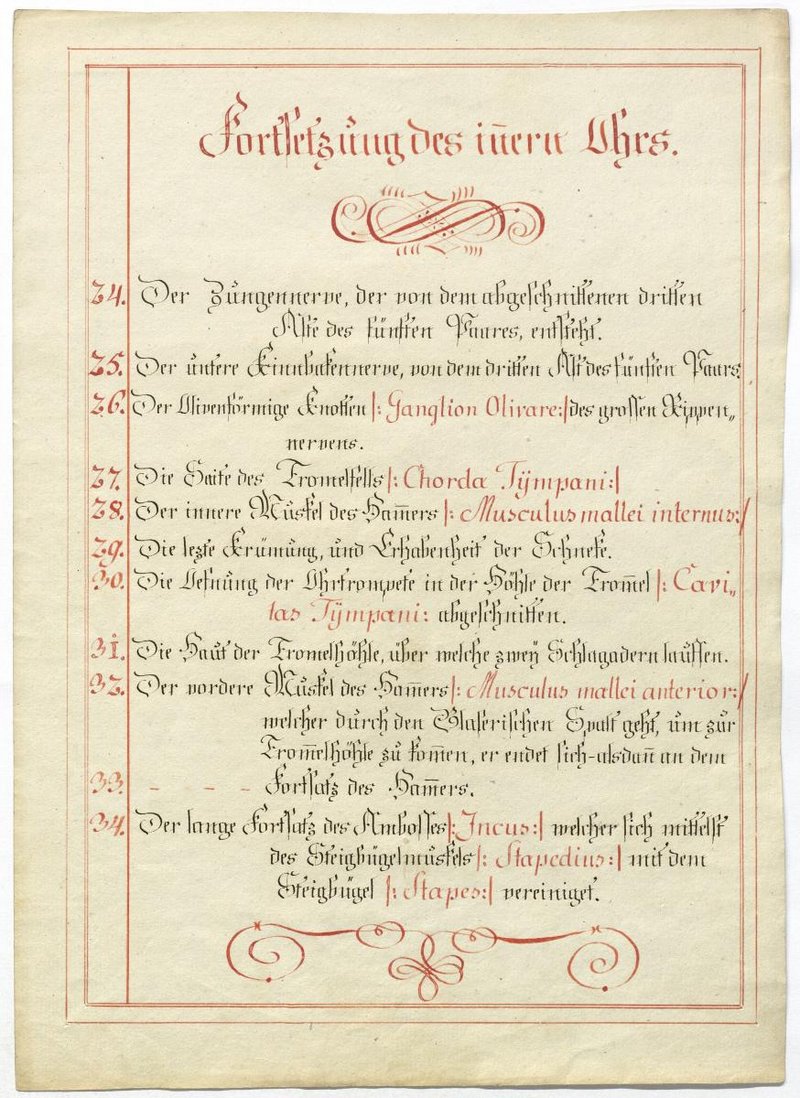 Fortsetzung des iñern Ohrs.
24. Der Zungennerve, der von dem abgeschnittenen dritten
Aste des fünften Paares, entsteht.
25. Der untere Kinnbakennerve, von dem dritten Ast des fünften Paars
26. Der Olivenförmige Knotten |: Ganglion Olivare:| des grossen Rippen„
nervens.
27. Die Saite des Tromelfells |: Chorda Tÿmpani:|
28. Der innere Muskel des Ham̄ers |: Musculus mallei internus:|
29. Die lezte Krümung, und Erhabenheit der Schneke.
30. Die Oefnung der Ohrtrompete in der Höhle der Trom̄el |: Cavi„
tas Tÿmpani: abgeschnitten.
31. Die Haut der Tromelhöhle, über welche zweÿ Schlagadern lauffen.
32. Der vordere Muskel des Ham̄ers |: Musculus mallei anterior:|
welcher durch den Glaserischen Spalt geht, um zur
Trom̄elhöhle zu kom̄en, er endet sich alsdañ an dem
33. - - - Fortsatz des Ham̄ers.
34. Der lange Fortsatz des Ambosses |: Incus:| welcher sich mittelst
des Steigbügelmuskels |: Stapedius:| mit dem
Steigbügel |: Stapes:| vereiniget.